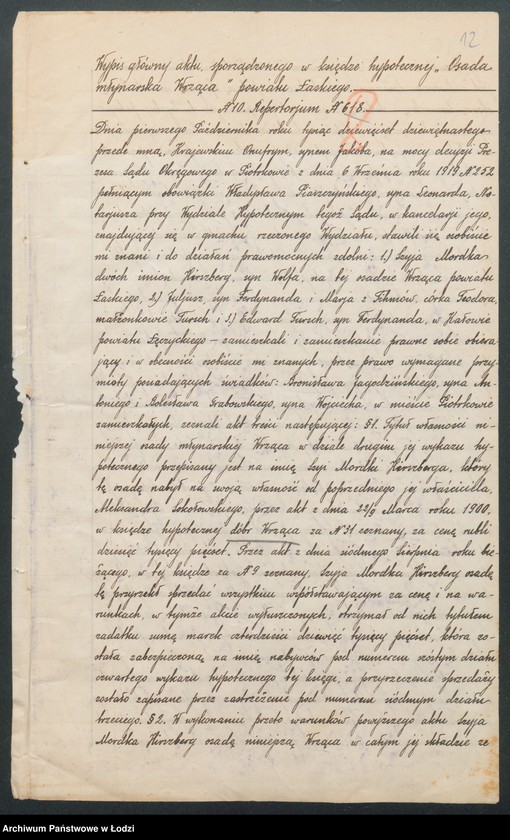 12
Wypis główny aktu, sporządzonego w księdze hypotecznej „Osada
młynarska Wrząca" powiatu Łaskiego.
№ 10. Repertorjum № 618.
Dnia pierwszego Października roku tysiąc dziewięćset dziewiętnastego
przede mną, Krajewskim Onufrym, synem Jakóba, na mocy decyzji Pre-
zesa Sądu Okręgowego w Piotrkowie z dnia 6 Września roku 1919 № 252
pełniącym obowiązki Władysława Piaszczyńskiego, syna Leonarda, No-
tarjusza przy Wydziale Hypotecznym tegoż Sądu, w kancelarji jego,
znajdującej się w gmachu rzeczonego Wydziału, stawili się osobiście
mi znani i do działań prawomocnych zdolni: 1.) Szyja Mordka
dwóch imion Hirszberg, syn Wolfa, na tej osadzie Wrząca powiatu
Łaskiego, 2.) Juljusz, syn Ferdynanda i Marja z córka Teodora,
małżonkowie Fursch i 3.) Edward Fursch, syn Ferdynanda, w
powiatu Łęczyckiego – zamieszkali i zamieszkanie prawne sobie obiera-
jący i w obecności osobiście mi znanych, przez prawo wymagane przy-
mioty posiadających świadków: Bronisława Jagodzińskiego, syna An-
toniego i Bolesława Grabowskiego, syna Wojciecha, w mieście Piotrkowie
zamieszkałych, zeznali akt treści następującej: §1. Tytuł własności ni-
niejszej osady młynarskiej Wrząca w dziale drugim jej wykazu hy-
potecznego przepisany jest na imię Szyi Mordki Hirszberga, który
tę osadę nabył na swoją własność od poprzedniego jej właściciela,
Aleksandra Sokołowskiego, przez akt z dnia 22/9 Marca roku 1900,
w księdze hypotecznej dóbr Wrząca za № 31 zeznany, za cenę rubli
dziesięć tysięcy pięćset. Przez akt z dnia siódmego Sierpnia roku bie-
żącego, w tej księdze za № 9 zeznany, Szyja Mordka Hirszberg osadę
tę przyrzekł sprzedać wszystkim współstawającym za cenę i na wa-
runkach, w tymże akcie wyłuszczonych, otrzymał od nich tytułem
zadatku sumę marek czterdzieści dziewięć tysięcy pięćset, która zo-
stała zabezpieczoną na imię nabywców pod numerem szóstym działu
czwartego wykazu hypotecznego tej księgi, a przyrzeczenie sprzedaży
zostało zapisane przez zastrzeżenie pod numerem siódmym działu
trzeciego. §2. W wykonaniu przeto warunków powyższego aktu Szyja
Mordka Hirszberg osadę niniejszą Wrząca w całym jej składzie ze
Archiwum Państwowe w Łodzi